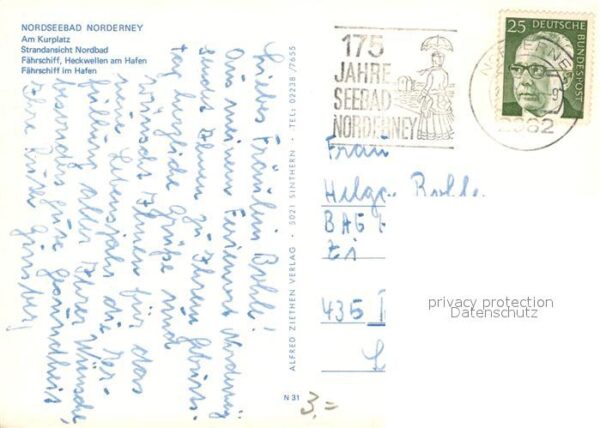 NORDSEEBAD NORDERNEY
Am Kurplatz
Strandansicht Nordbad
Fährschiff, Heckwellen am Hafen
Fährschiff im Hafen
Liebes Fräulein Bohle!
Aus meinem Ferienort Norderney
sende Ihnen zu Ihrem Geburts-
tag herzliche Grüße und
wünsche Ihnen für das
neue Lebensjahr die Er-
füllung aller Ihrer Wünsche,
besonders gute Gesundheit
Ihre
ALFRED ZIETHEN VERLAG · 5021 SINTHERN · TEL: 02238 /7655
N 31
3,=
175
JAHRE
SEEBAD
NORDERNEY
NORDERNEY
2982
25 DEUTSCHE
BUNDESPOST
Frau
Helga
435
privacy protection
Datenschutz